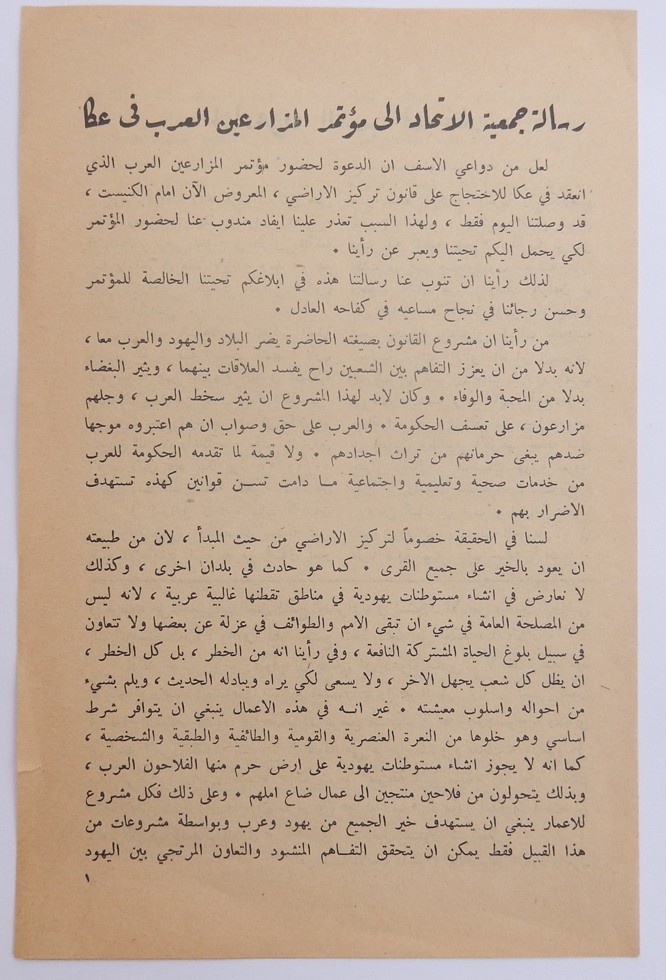 رسالة جمعية الاتحاد الى مؤتمر المزارعين العرب في عكا
لعل من دواعي الاسف ان الدعوة لحضور مؤتمر المزارعين العرب الذي
انعقد في عكا للاحتجاج على قانون تركيز الاراضي ، المعروض الآن امام الكنيست ،
قد وصلتنا اليوم فقط ، ولهذا السبب تعذر علينا ايفاد مندوب عنا لحضور المؤتمر
لكي يحمل اليكم تحيتنا ويعبر عن رأينا ٠
لذلك رأينا ان تنوب عنا رسالتنا هذه في ابلاغكم تحيتنا الخالصة للمؤتمر
وحسن رجائنا في نجاح مساعيه في كفاحه العادل ٠
من رأينا ان مشروع القانون بصيغته الحاضرة يضر البلاد واليهود والعرب معا ،
لانه بدلا من ان يعزز التفاهم بين الشعبين راح يفسد العلاقات بينهما ، ويثير البغضاء
بدلا من المحبة والوفاء ٠ وكان لابد لهذا المشروع ان يثير سخط العرب ، وجلهم
مزارعون ، على تعسف الحكومة ٠ والعرب على حق وصواب ان هم اعتبروه موجها
ضدهم يبغى حرمانهم من تراث اجدادهم ٠ ولا قيمة لما تقدمه الحكومة للعرب
من خدمات صحية وتعليمية واجتماعية مــا دامت تســن قوانين كهذه تستهدف
الاضرار بهم ٠
لسنا في الحقيقة خصوماً لتركيز الاراضي من حيث المبدأ ، لان من طبيعته
ان يعود بالخير على جميع القرى ٠ كما هو حادث في بلدان اخرى ، وكذلك
لا نعارض في انشاء مستوطنات يهودية في مناطق تقطنها غالبية عربية ، لانه ليس
من المصلحة العامة في شيء ان تبقى الامم والطوائف في عزلة عن بعضها ولا تتعاون
في سبيل بلوغ الحياة المشتركة النافعة ، وفي رأينا انه من الخطر ، بل كل الخطر ،
ان يظل كل شعب يجهل الاخر ، ولا يسعى لكي يراه ويبادله الحديث ، ويلم بشيء
من احواله واسلوب معيشته ٠ غير انــه في هذه الاعمال ينبغي ان يتوافر شرط
اساسي وهو خلوها من النعرة العنصرية والقومية والطائفية والطبقية والشخصية ،
كما انه لا يجوز انشاء مستوطنات يهودية على ارض حرم منها الفلاحون العرب ،
وبذلك يتحولون من فلاحين منتجين الى عمال ضاع املهم ٠ وعلى ذلك فكل مشروع
للاعمار ينبغي ان يستهدف خير الجميع من يهود وعرب وبواسطة مشروعات من
هذا القبيل فقط يمكن ان يتحقق التفــاهم المنشود والتعاون المرتجي بين اليهود
١